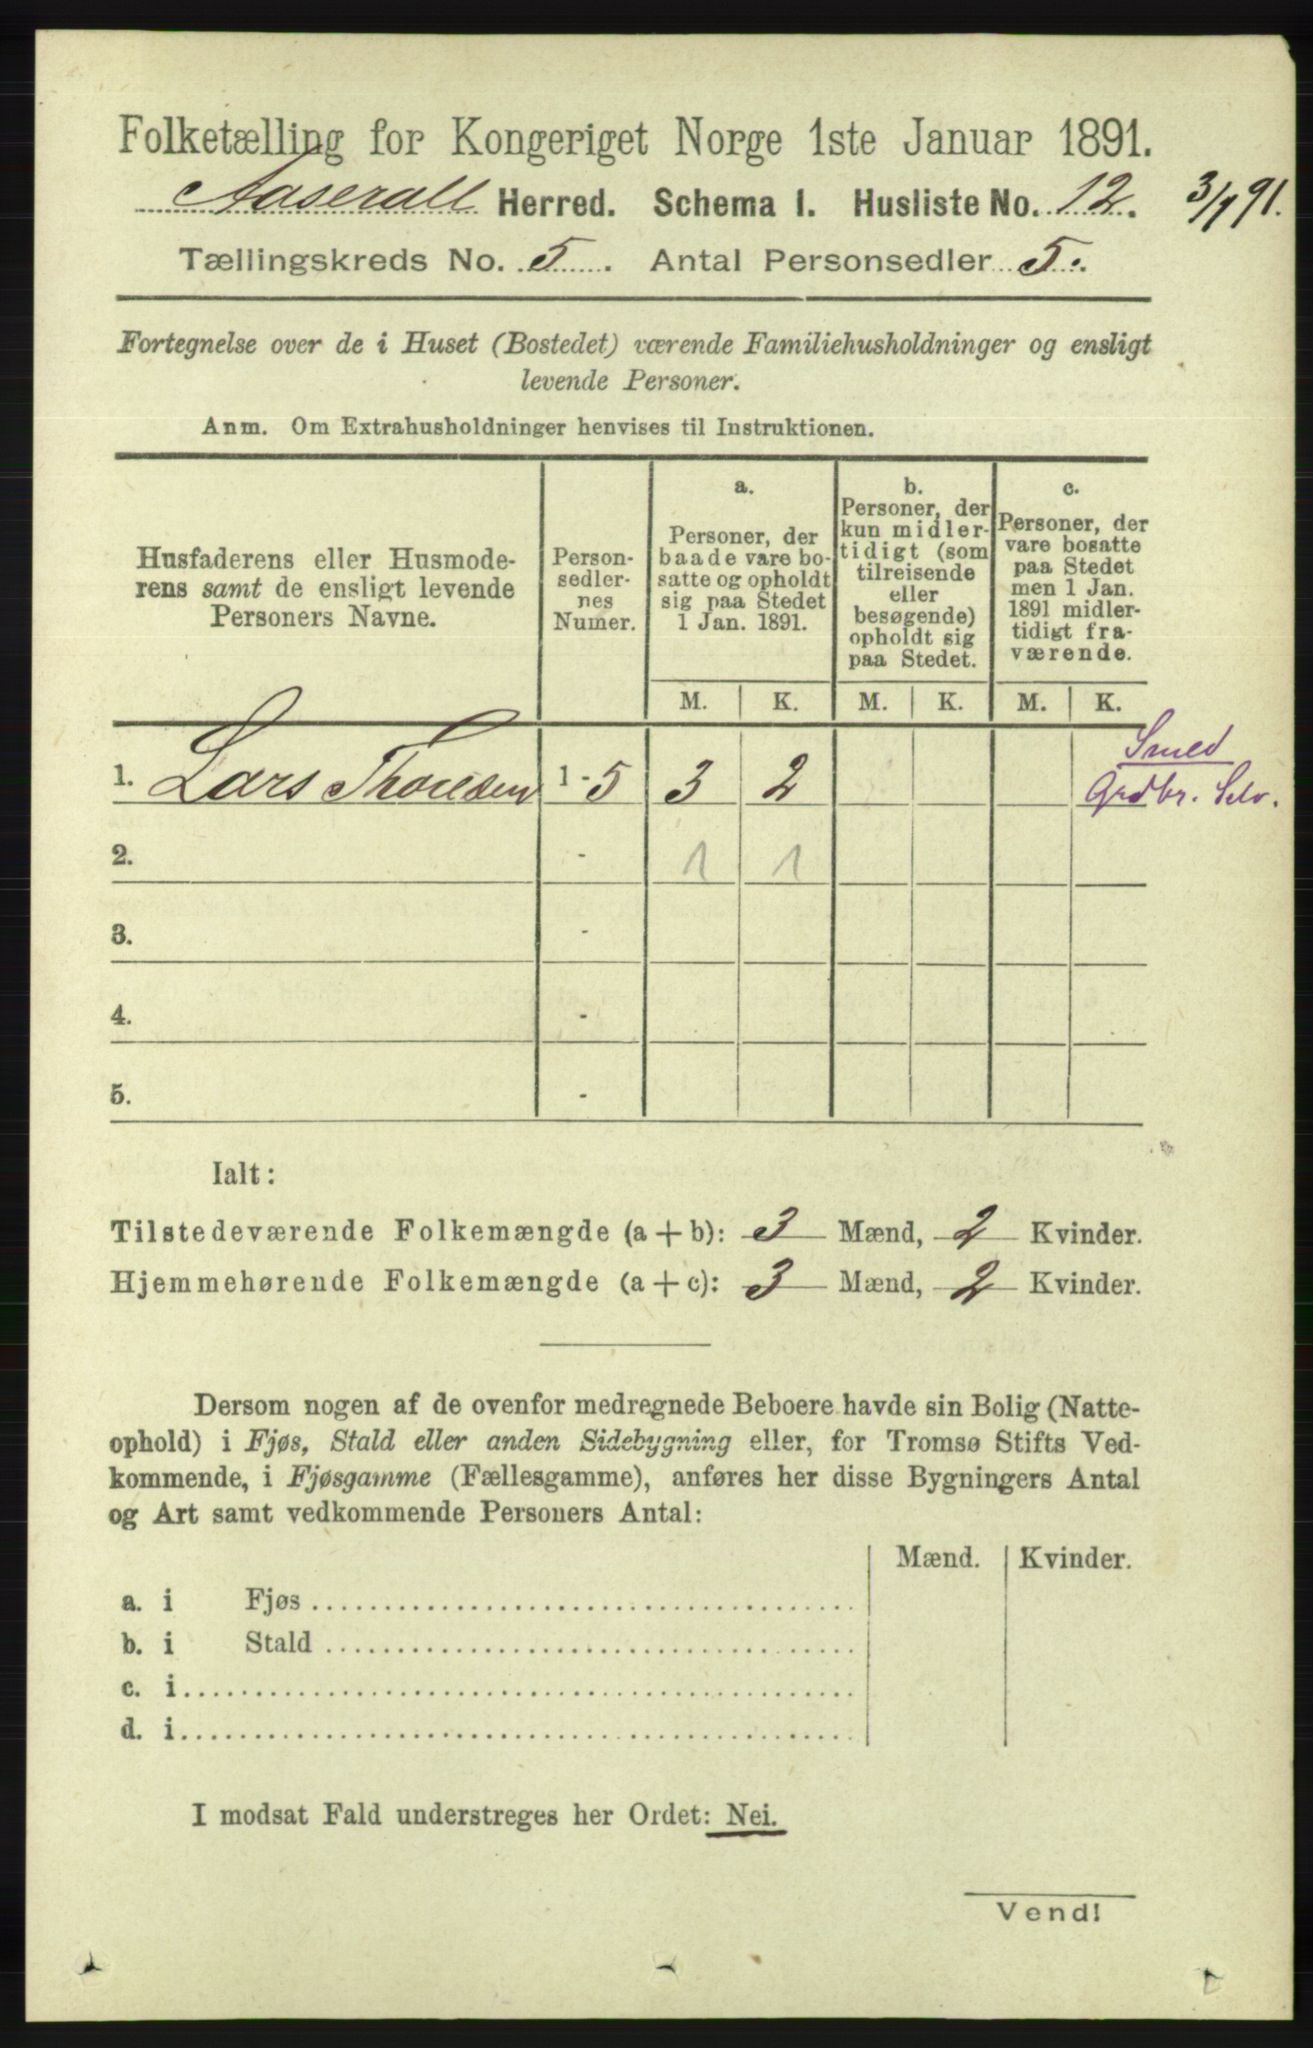 Folketælling for Kongeriget Norge 1ste Januar 1891.
Aaserall Herred. Schema I. Husliste No. 12. 3/1 91.
Tællingskreds No. 5. Antal Personsedler 5.
Fortegnelse over de i Huset (Bostedet) værende Familiehusholdninger og ensligt
levende Personer.
Anm. Om Extrahusholdninger henvises til Instruktionen.
Husfaderens eller Husmode-
rens samt de ensligt levende
Personers Navne.
Person-
sedler-
nes
Numer.
a.
Personer, der
baade vare bo-
satte og opholdt
sig paa Stedet
1 Jan. 1891.
b.
Personer, der
kun midler-
tidigt (som
tilreisende
eller
besøgende)
opholdt sig
paa Stedet.
c.
Personer, der
vare bosatte
paa Stedet
men 1 Jan.
1891 midler-
tidigt fra-
værende.
M. K. M. K. M. K.
Smed
1. Lars Thorsen 1 - 5 3 2 Grdbr. Selv.
2. - 1 1
3. -
4. -
5. -
Ialt:
Tilstedeværende Folkemængde (a + b): 3 Mænd, 2 Kvinder.
Hjemmehørende Folkemængde (a + c): 3 Mænd, 2 Kvinder.
Dersom nogen af de ovenfor medregnede Beboere havde sin Bolig (Natte-
ophold) i Fjøs, Stald eller anden Sidebygning eller, for Tromsø Stifts Ved-
kommende, i Fjøsgamme (Fællesgamme), anføres her disse Bygningers Antal
og Art samt vedkommende Personers Antal:
Mænd. Kvinder.
a. i Fjøs
b. i Stald
c. i
d. i
I modsat Fald understreges her Ordet: Nei.
Vend!